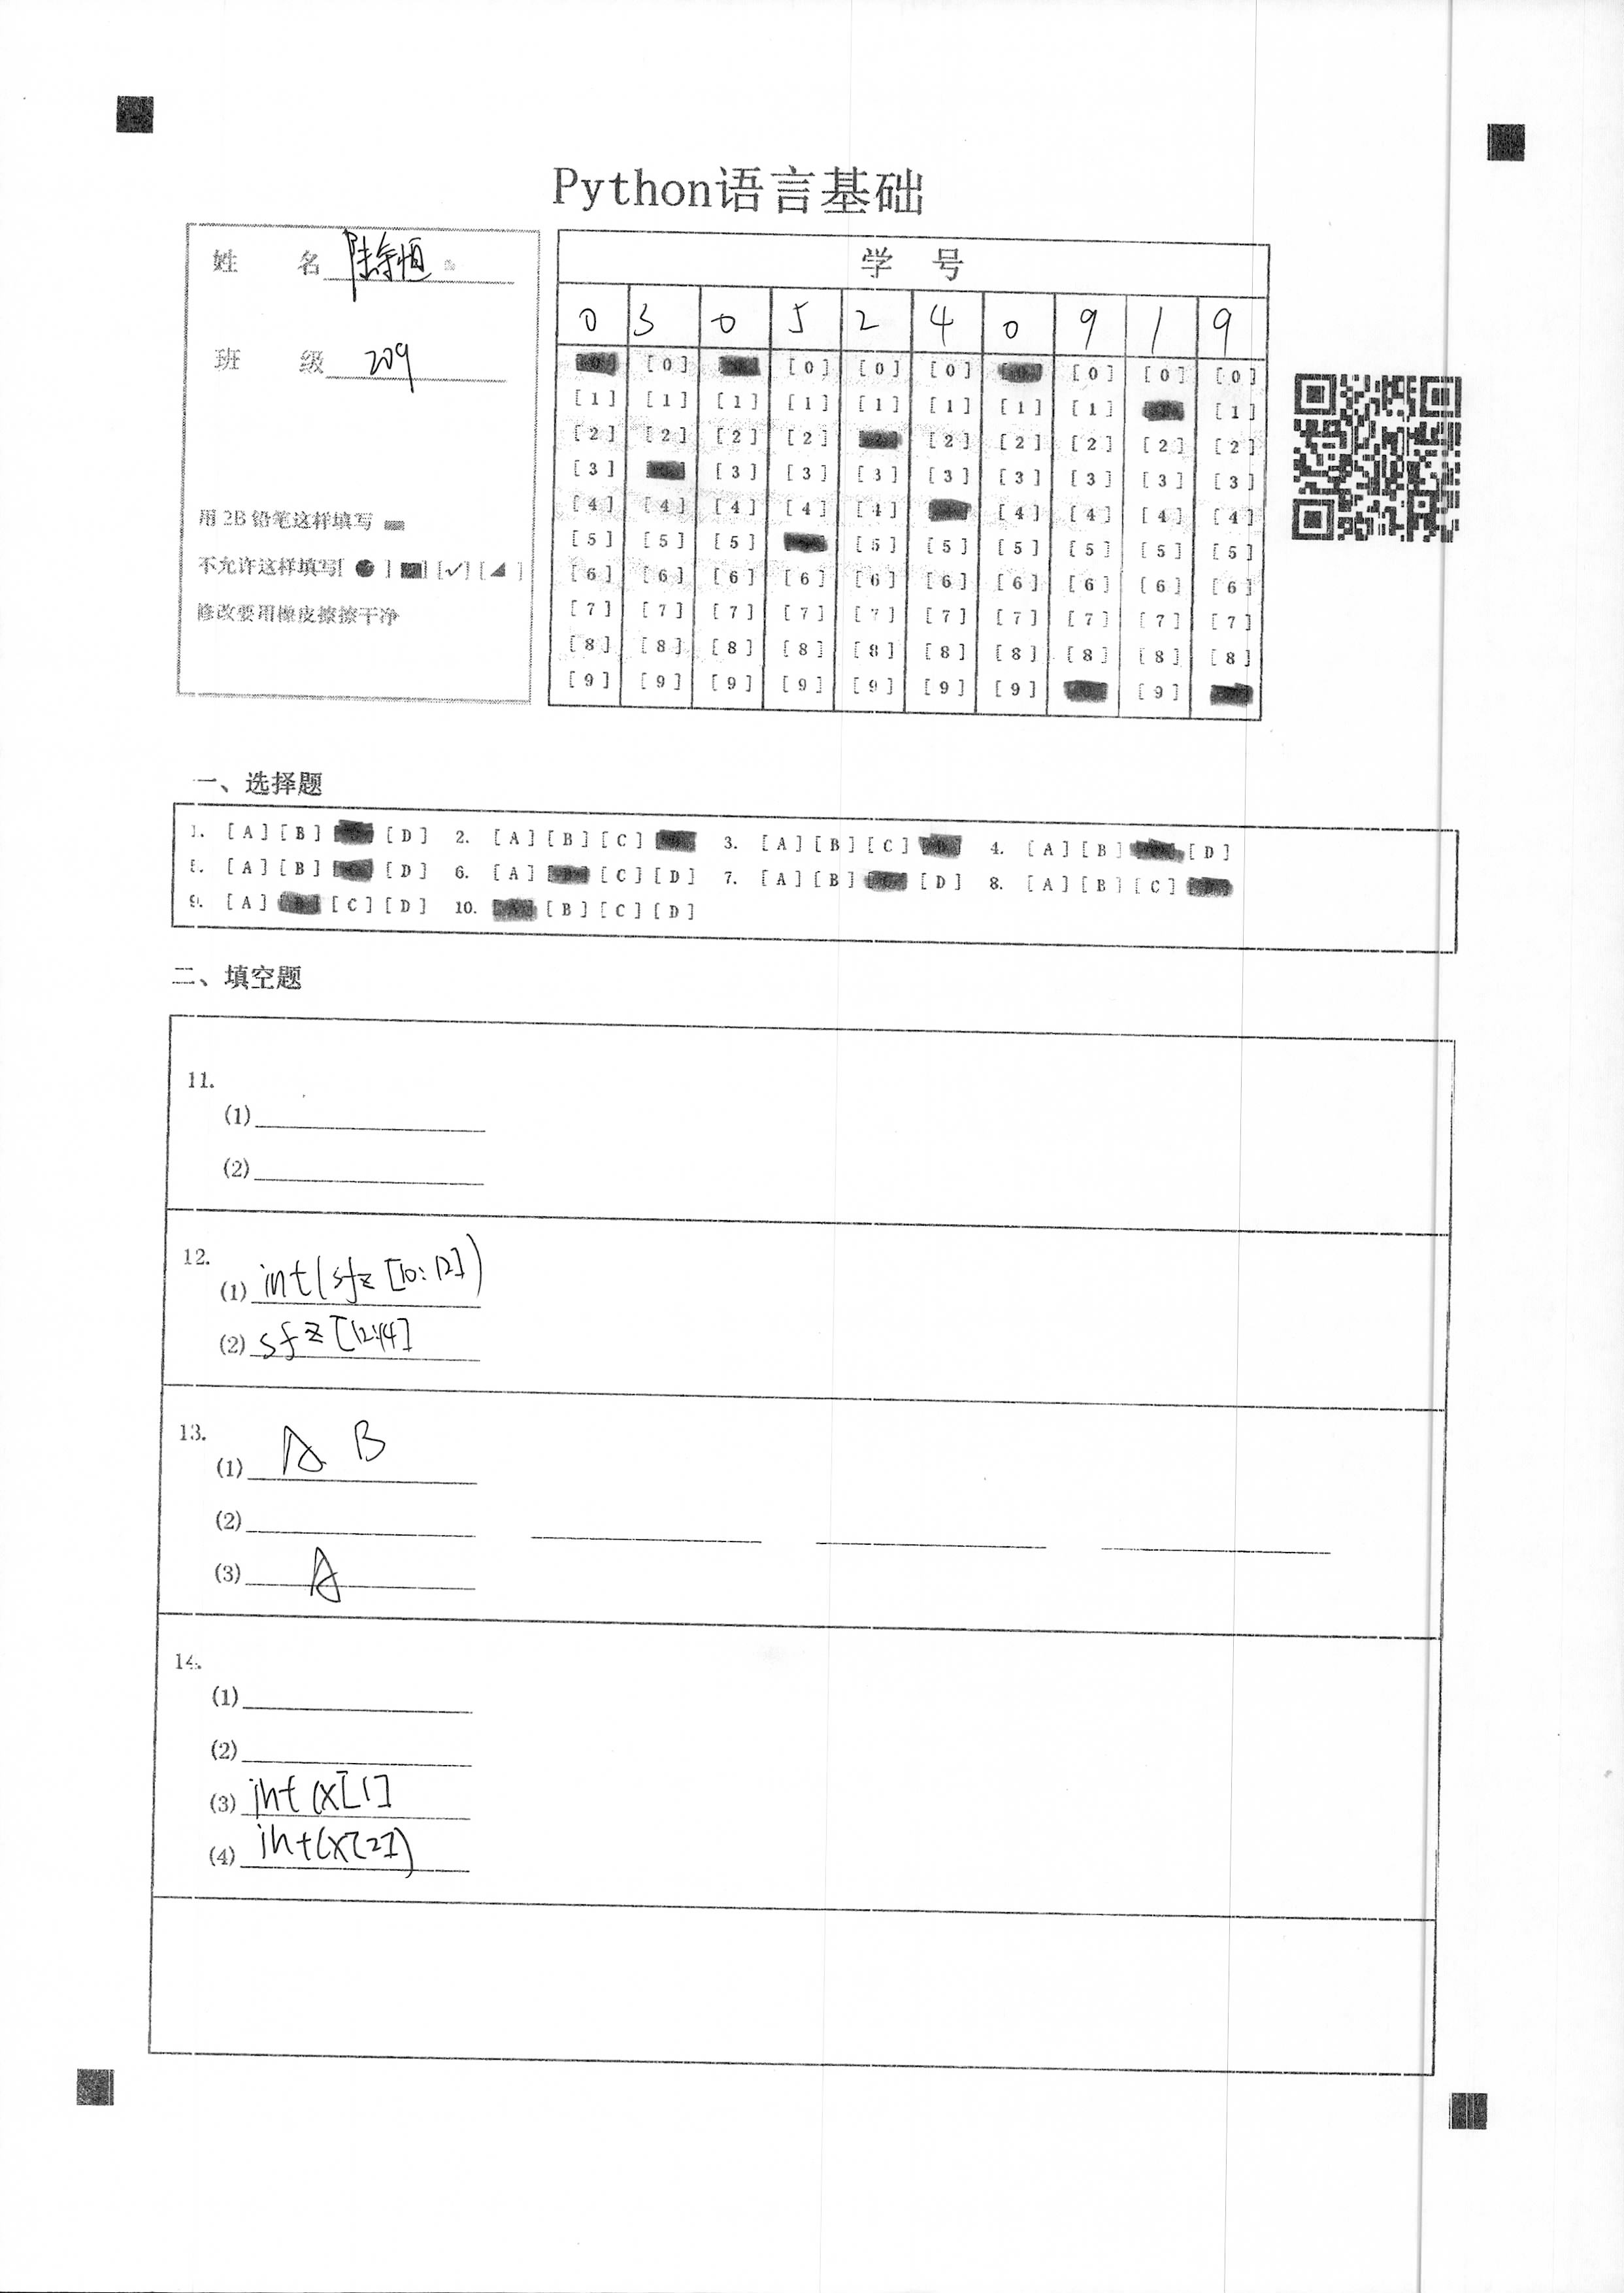 Python语言基础
姓 名 陆余恒
班 级 209
用 2B 铅笔这样填写
不允许这样填写[ ] [ ] [✓] [ ]
修改要用橡皮擦擦干净
学 号
0 3 0 5 2 4 0 9 1 9
[0] [0] [0] [0] [0] [0]
[1] [1] [1] [1] [1] [1] [1] [1] [1]
[2] [2] [2] [2] [2] [2] [2] [2] [2]
[3] [3] [3] [3] [3] [3] [3] [3] [3]
[4] [4] [4] [4] [4] [4] [4] [4] [4]
[5] [5] [5] [5] [5] [5] [5] [5] [5]
[6] [6] [6] [6] [6] [6] [6] [6] [6] [6]
[7] [7] [7] [7] [7] [7] [7] [7] [7] [7]
[8] [8] [8] [8] [8] [8] [8] [8] [8] [8]
[9] [9] [9] [9] [9] [9] [9] [9]
一、选择题
1. [A] [B] [D] 2. [A] [B] [C] 3. [A] [B] [C] 4. [A] [B] [D]
5. [A] [B] [D] 6. [A] [C] [D] 7. [A] [B] [D] 8. [A] [B] [C]
9. [A] [C] [D] 10. [B] [C] [D]
二、填空题
11.
(1)
(2)
12.
(1) int(sfz[10:12])
(2) sfz[12:14]
13.
(1) A B
(2)
(3) A
14.
(1)
(2)
(3) int(x[1]
(4) int(x[2])